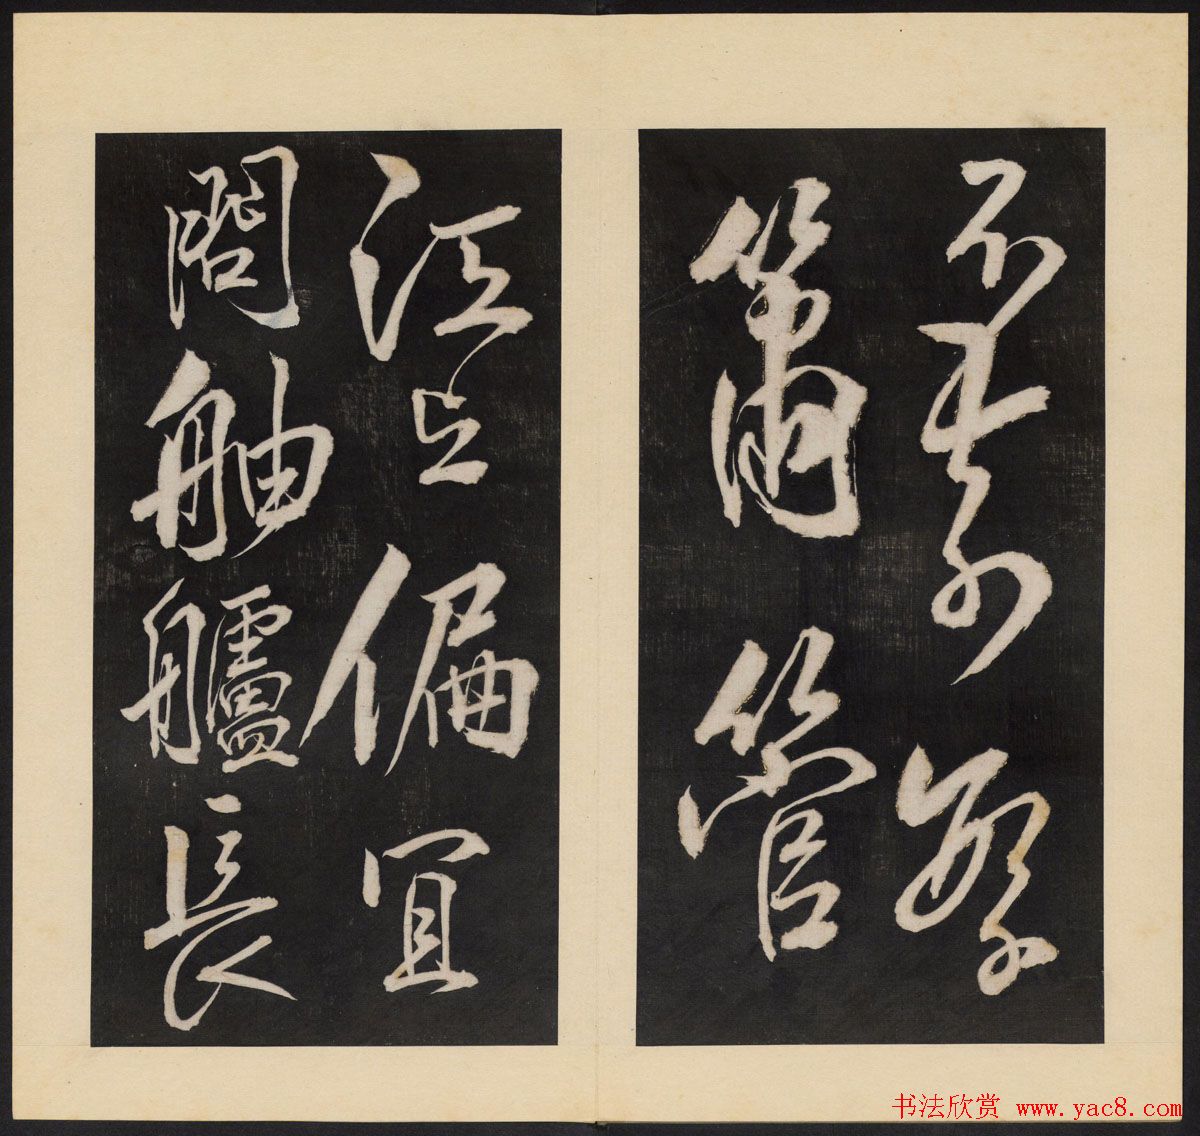 不繁
箫管
江上偏宜
闊舳艫長
书法欣赏 www.yac8.com